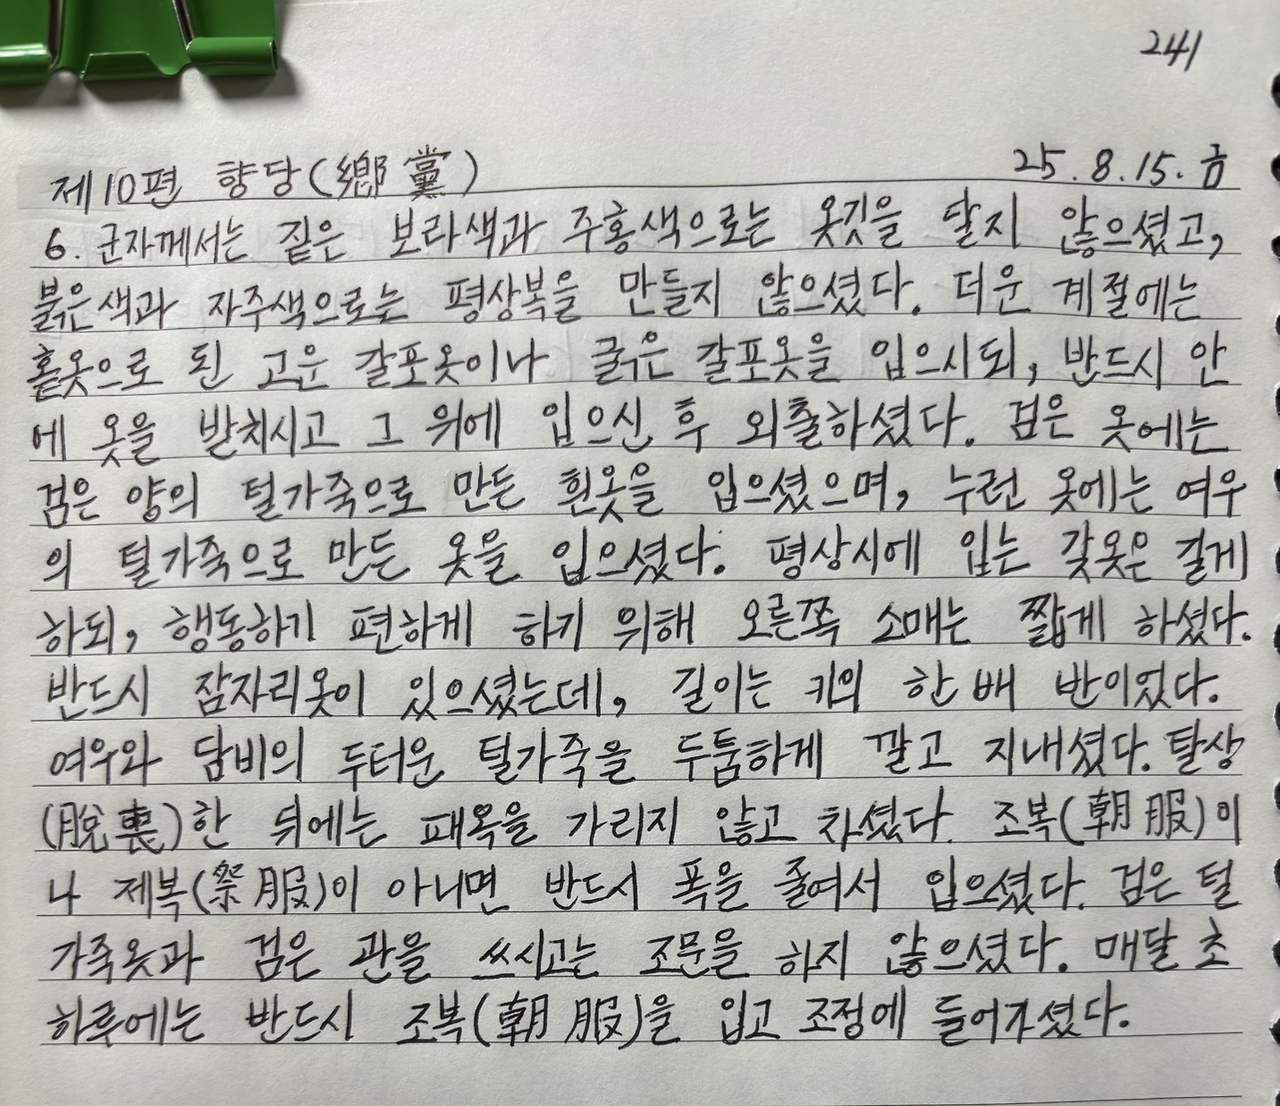 241
제10편 향당(鄕黨) 25.8.15.금
6. 군자께서는 짙은 보라색과 주홍색으로는 옷깃을 달지 않으셨고,
붉은색과 자주색으로는 평상복을 만들지 않으셨다. 더운 계절에는
홑옷으로 된 고운 갈포옷이나 굵은 갈포옷을 입으시되, 반드시 안
에 옷을 받쳐시고 그 위에 입으신 후 외출하셨다. 검은 옷에는
검은 양의 털가죽으로 만든 흰옷을 입으셨으며, 누런 옷에는 여우
의 털가죽으로 만든 옷을 입으셨다. 평상시에 입는 갖옷은 길게
하되, 행동하기 편하게 하기 위해 오른쪽 소매는 짧게 하셨다.
반드시 잠자리옷이 있으셨는데, 길이는 키의 한 배 반이었다.
여우와 담비의 두터운 털가죽을 두툼하게 깔고 지내셨다. 탈상
(脫喪)한 뒤에는 패옥을 가리지 않고 차셨다. 조복(朝服)이
나 제복(祭服)이 아니면 반드시 폭을 줄여서 입으셨다. 검은 털
가죽옷과 검은 관을 쓰시고는 조문을 하지 않으셨다. 매달 초
하루에는 반드시 조복(朝服)을 입고 조정에 들어가셨다.